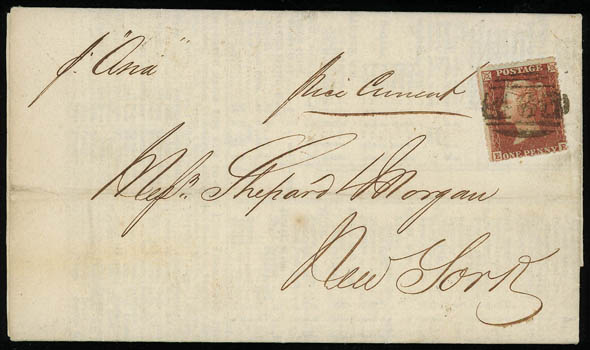 p. "Asia"
Price Current
POSTAGE
E ONE PENNY E
Messrs. Shepard & Morgan
New York